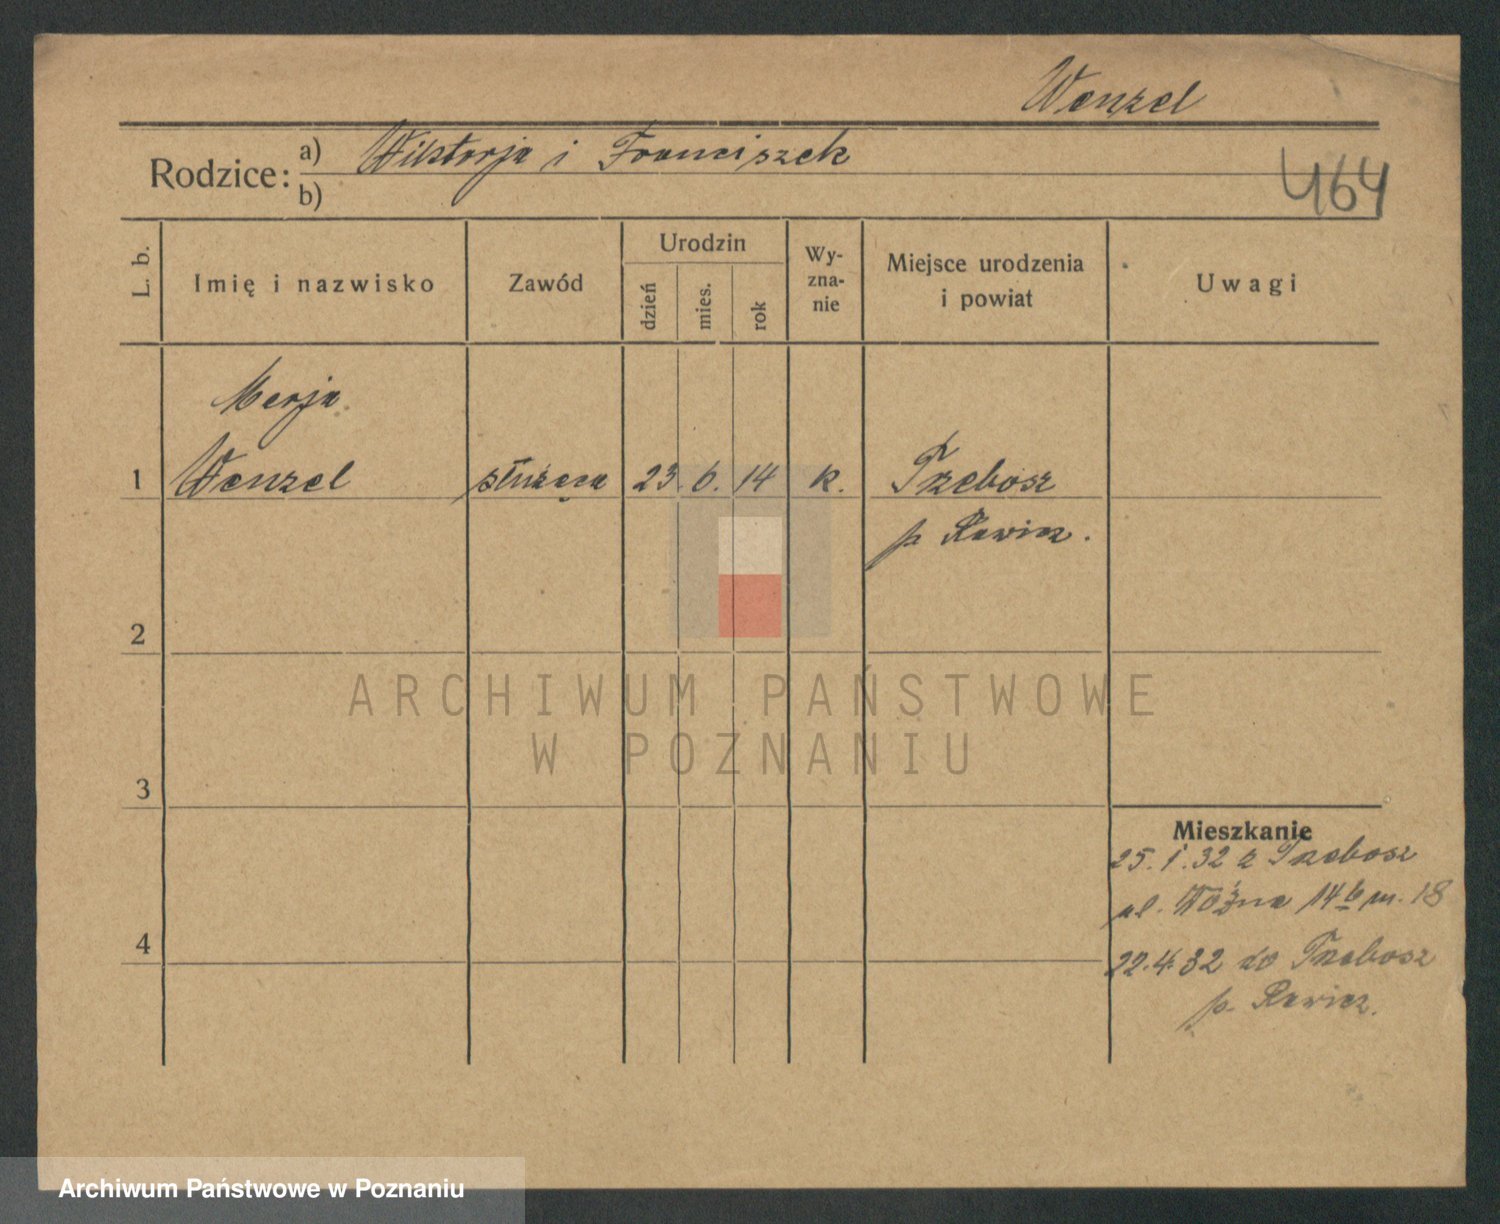 Wenzel
Rodzice: a) Wiktorja i Franciszek
b)
464
L. b.
Imię i nazwisko
Zawód
Urodzin
dzień
mies.
rok
Wy-
zna-
nie
Miejsce urodzenia
i powiat
Uwagi
Marja
1 Wenzel służąca 23. 6. 14 k. Trzebosz
p. Rawicz.
2
ARCHIWUM PAŃSTWOWE
W POZNANIU
3
Mieszkanie
25. 1. 32 z Trzebosz
ul. Woźna 14b m. 18
4
22.4.32 do Trzebosz
p. Rawicz.
Archiwum Państwowe w Poznaniu